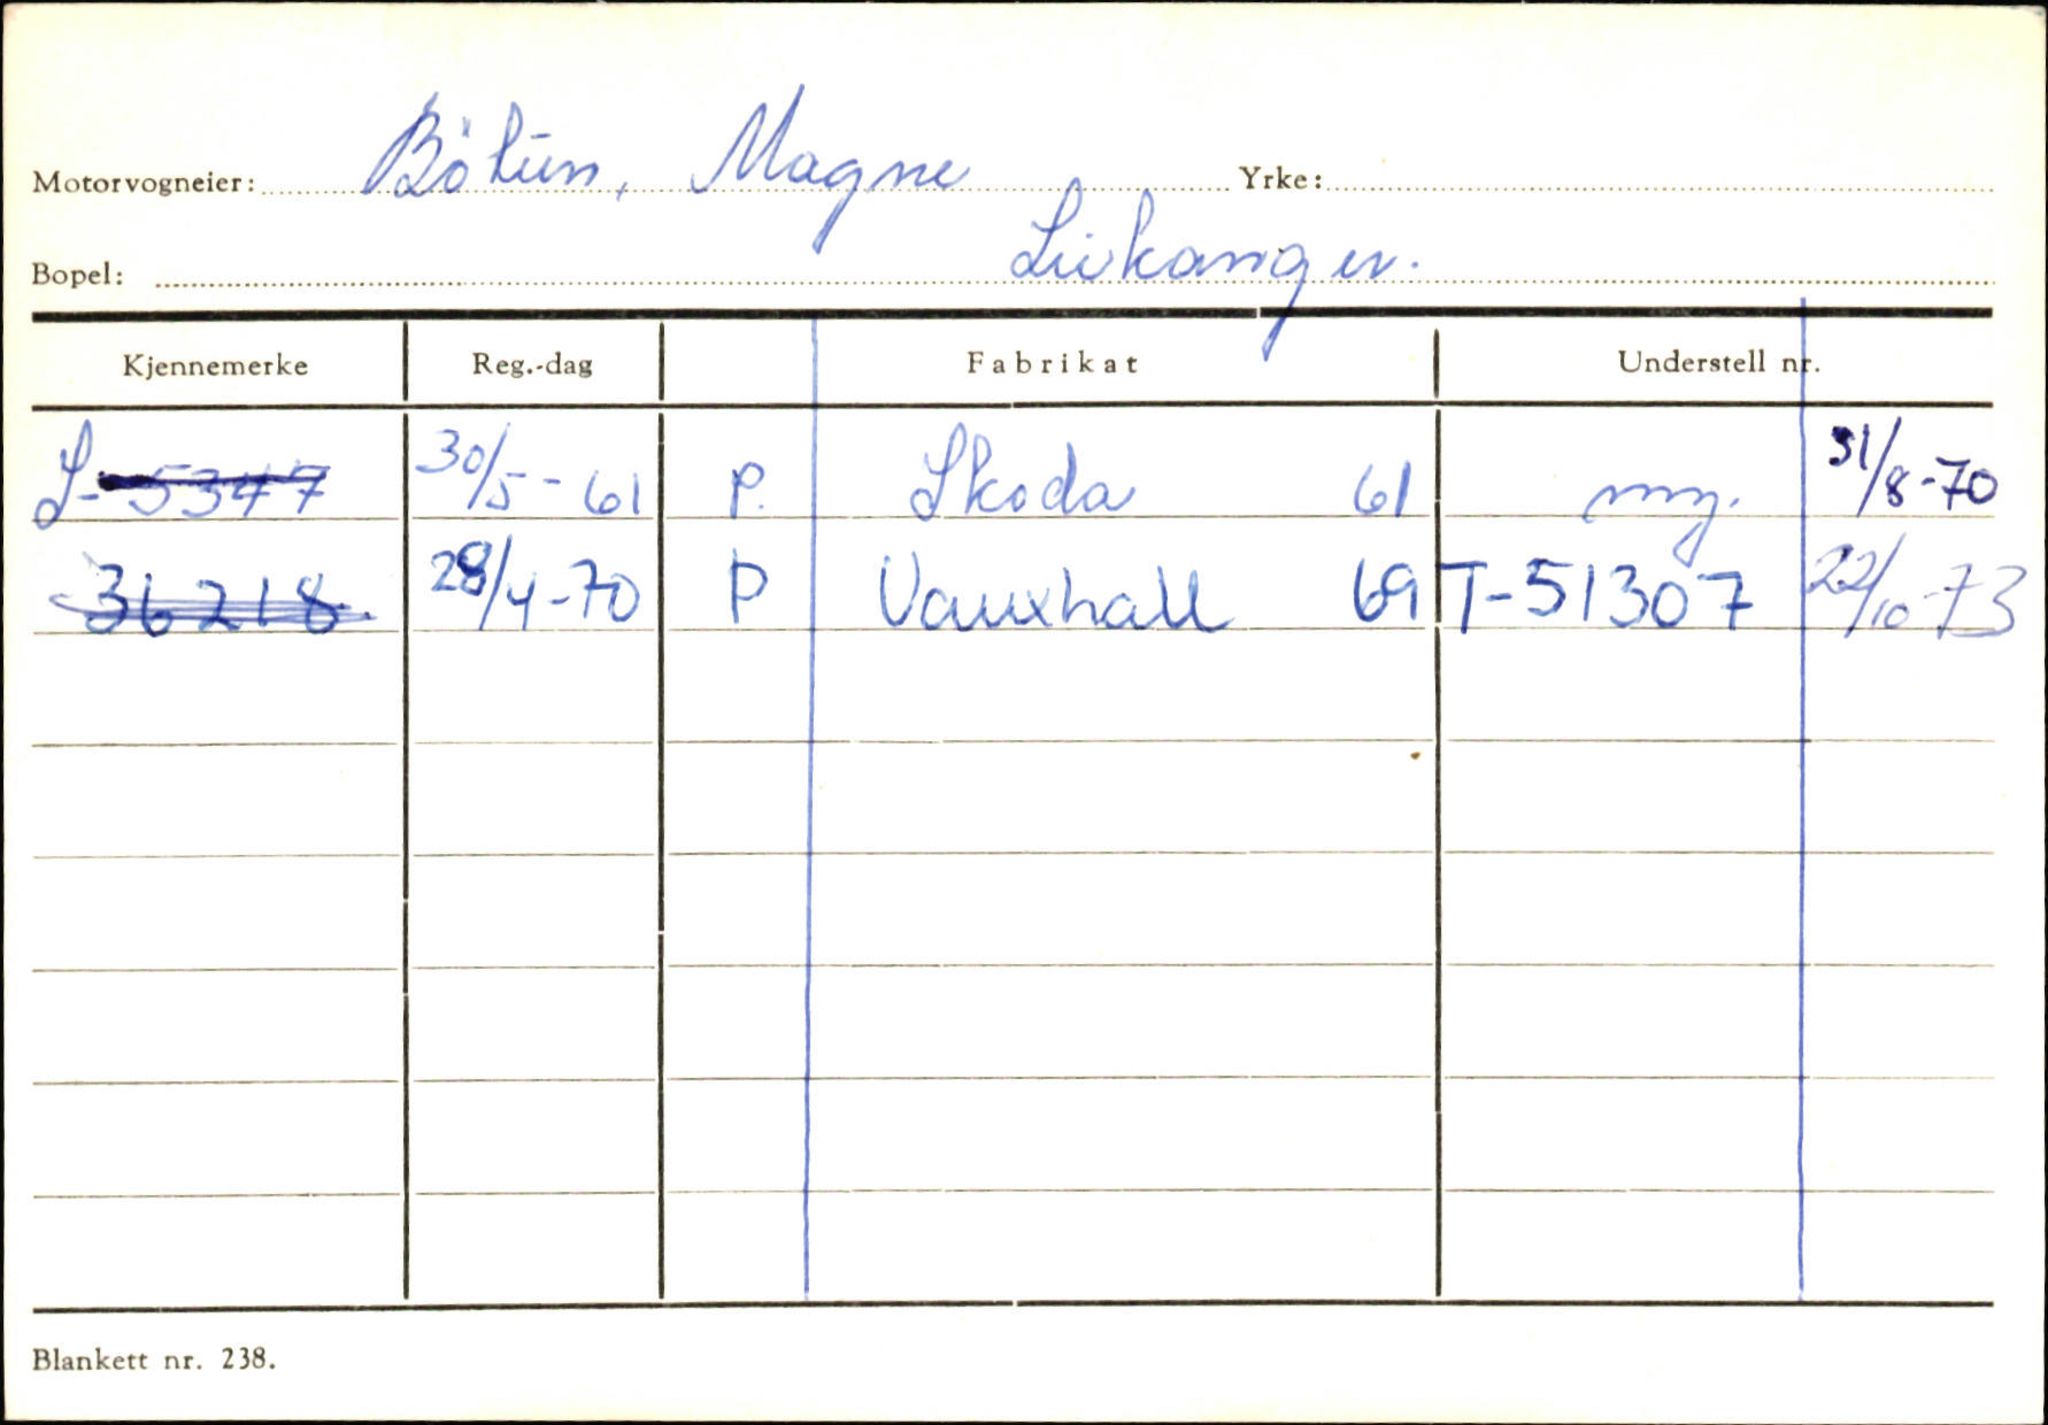 Motorvogneier: Bötun, Magne Yrke:
Bopel: Leikanger.
Kjennemerke Reg.-dag Fabrikat Understell nr.
S-5347 30/5-61 P. Skoda 61 ny. 31/8-70
36218 28/4-70 P Vauxhall 69 T-51307 22/10-73
Blankett nr. 238.